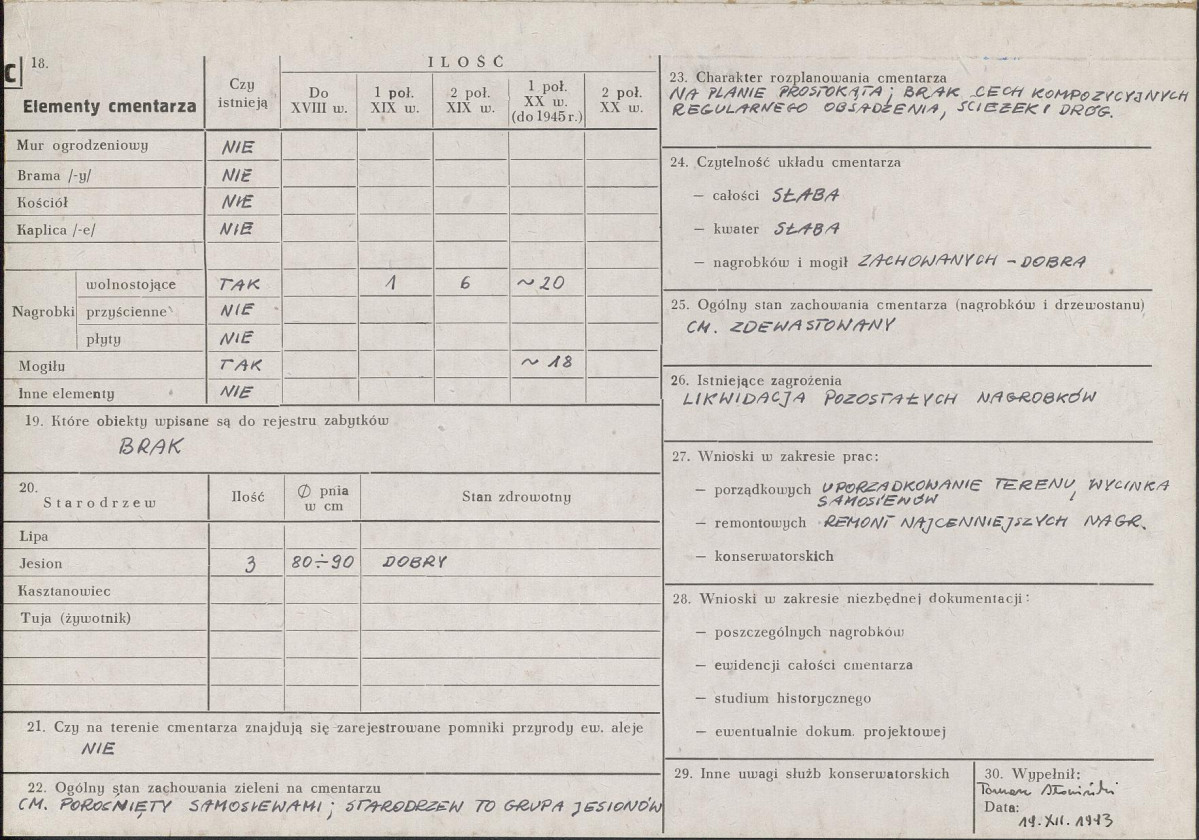 C
18.
Elementy cmentarza
Czy istnieją
ILOŚĆ
Do XVIII w.
1 poł. XIX w.
2 poł. XIX w.
1 poł. XX w. (do 1945 r.)
2 poł. XX w.
Mur ogrodzeniowy NIE
Brama /-y/ NIE
Kościół NIE
Kaplica /-e/ NIE
Nagrobki
wolnostojące TAK 1 6 ~20
przyścienne NIE
płyty NIE
Mogiły TAK ~ 18
Inne elementy NIE
19. Które obiekty wpisane są do rejestru zabytków
BRAK
20. Starodrzew
Ilość
∅ pnia w cm
Stan zdrowotny
Lipa
Jesion 3 80÷90 DOBRY
Kasztanowiec
Tuja (żywotnik)
21. Czy na terenie cmentarza znajdują się zarejestrowane pomniki przyrody ew. aleje
NIE
22. Ogólny stan zachowania zieleni na cmentarzu
CM. POROŚNIĘTY SAMOSIEWAMI; STARODRZEW TO GRUPA JESIONÓW
23. Charakter rozplanowania cmentarza
NA PLANIE PROSTOKĄTA; BRAK CECH KOMPOZYCYJNYCH
REGULARNEGO OBSADZENIA, ŚCIEŻEK I DRÓG.
24. Czytelność układu cmentarza
– całości SŁABA
– kwater SŁABA
– nagrobków i mogił ZACHOWANYCH – DOBRA
25. Ogólny stan zachowania cmentarza (nagrobków i drzewostanu)
CM. ZDEWASTOWANY
26. Istniejące zagrożenia
LIKWIDACJA POZOSTAŁYCH NAGROBKÓW
27. Wnioski w zakresie prac:
– porządkowych UPORZĄDKOWANIE TERENU, WYCINKA
SAMOSIEWÓW
– remontowych REMONT NAJCENNIEJSZYCH NAGR.
– konserwatorskich
28. Wnioski w zakresie niezbędnej dokumentacji:
– poszczególnych nagrobków
– ewidencji całości cmentarza
– studium historycznego
– ewentualnie dokum. projektowej
29. Inne uwagi służb konserwatorskich
30. Wypełnił:
Tomasz
Data:
19.XII.1993